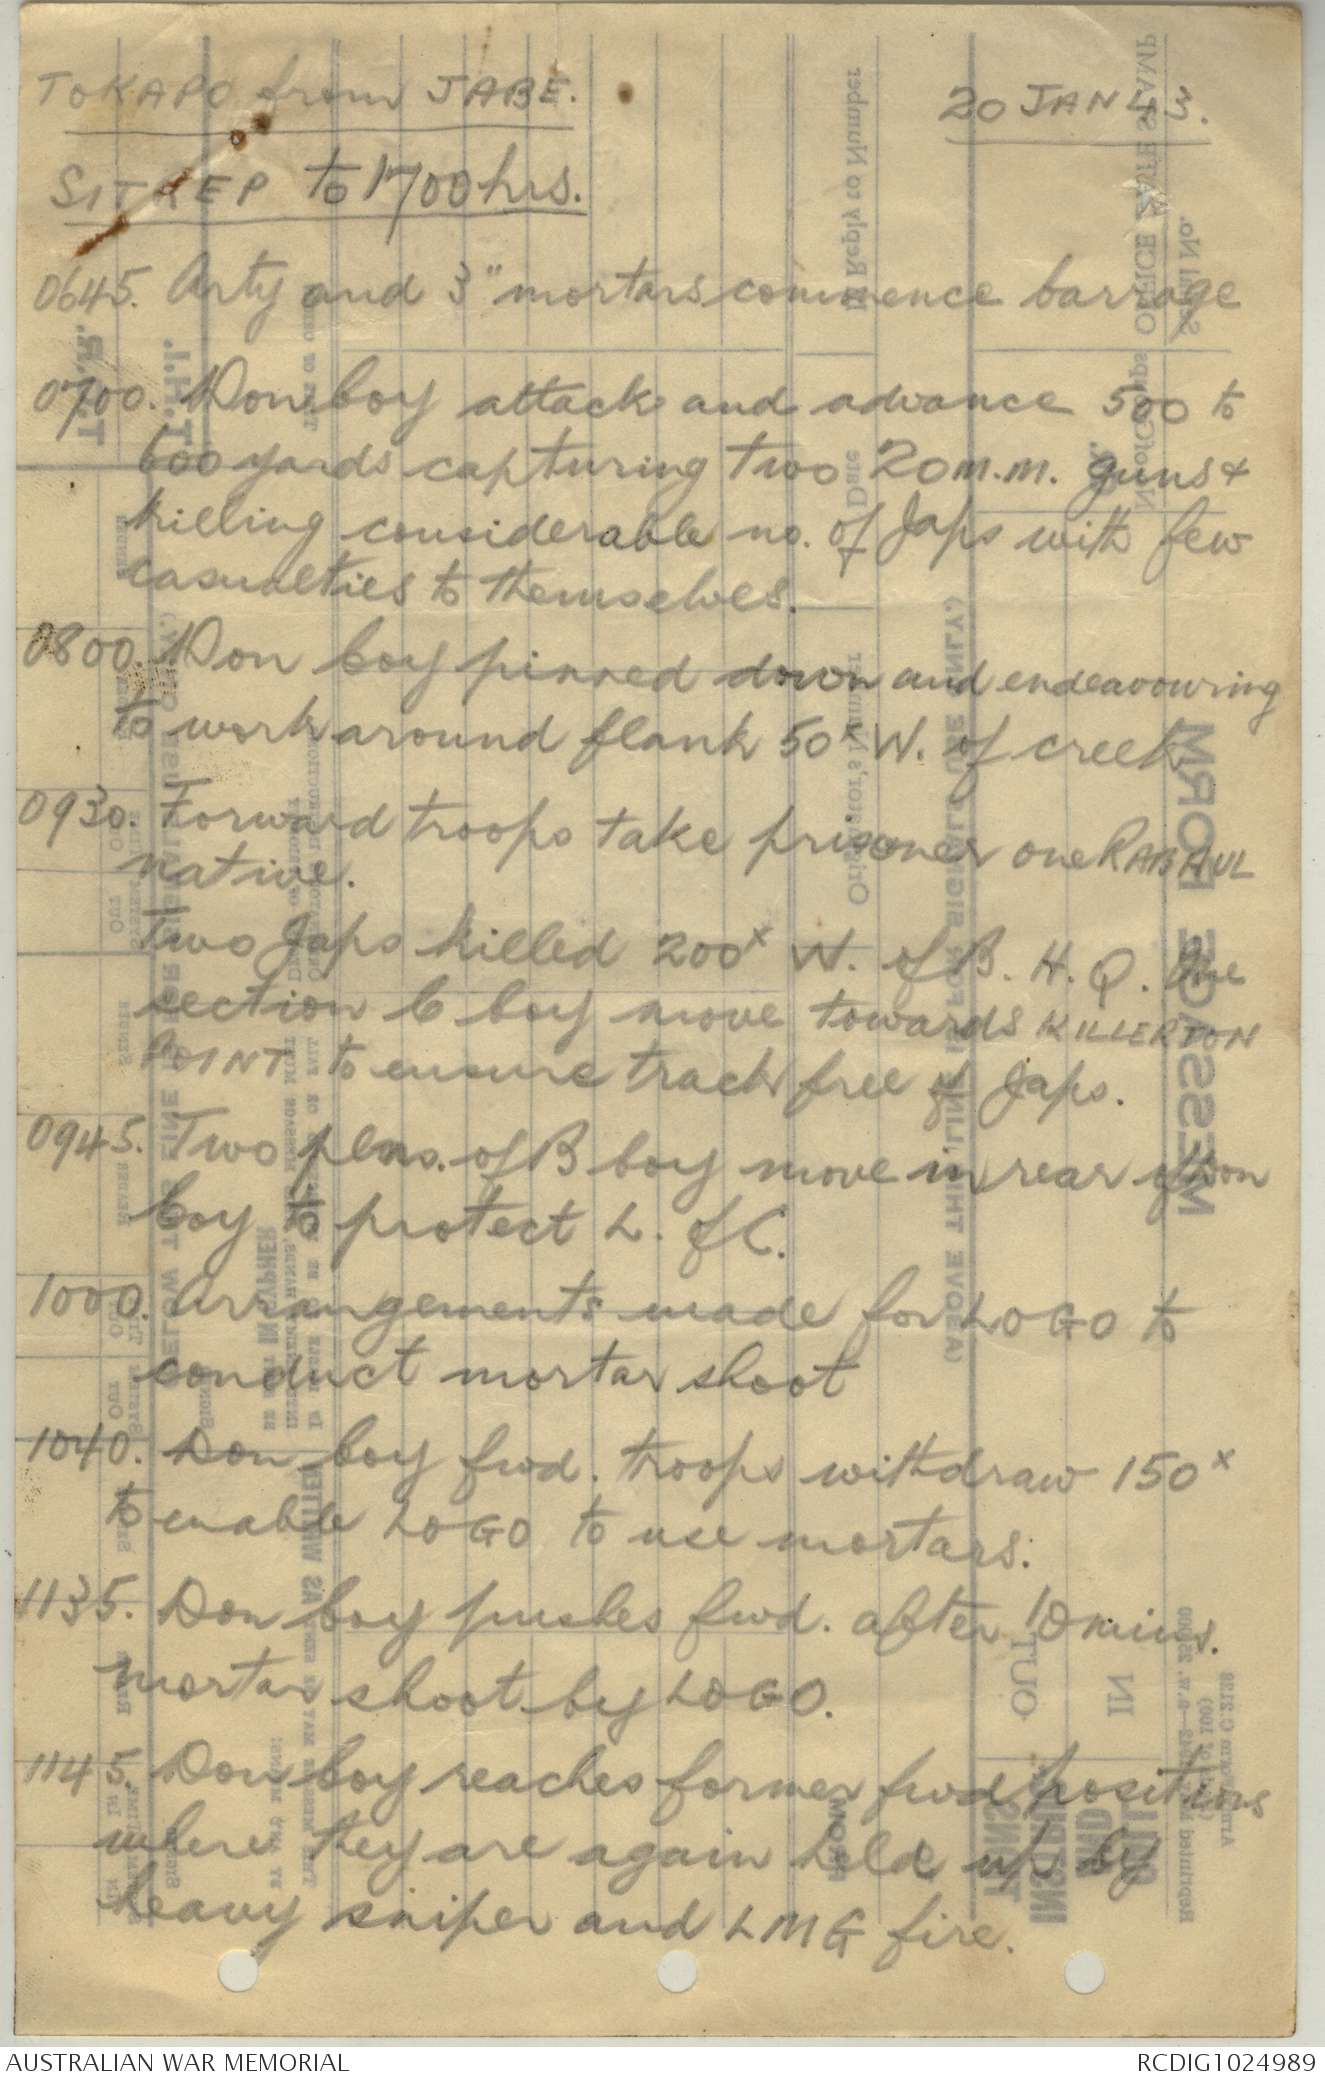 To KAPO from JABE.
20 JAN 43.
SITREP to 1700 hrs.
0645. Arty and 3" mortars commence barrage
0700. Don boy attack and advance 500 to
600 yards capturing two 20 m.m. guns &
killing considerable no. of Japs with few
casualties to themselves.
0800. Don boy pinned down and endeavouring
to work around flank 50x W. of creek
0930. Forward troops take prisoner one RABAUL
native.
Two Japs killed 200x W. of B.H.Q. One
section C boy move towards KILLERTON
POINT to ensure track free of Japs.
0945. Two plns. of B boy move in rear of Don
boy to protect L. of C.
1000. Arrangements made for LOGO to
conduct mortar shoot
1040. Don boy fwd. troops withdraw 150x
to enable LOGO to use mortars.
1135. Don boy pushes fwd. after 10 mins.
mortar shoot by LOGO.
1145. Don boy reaches former fwd positions
where they are again held up by
heavy sniper and LMG fire.
AUSTRALIAN WAR MEMORIAL
RCDIG1024989